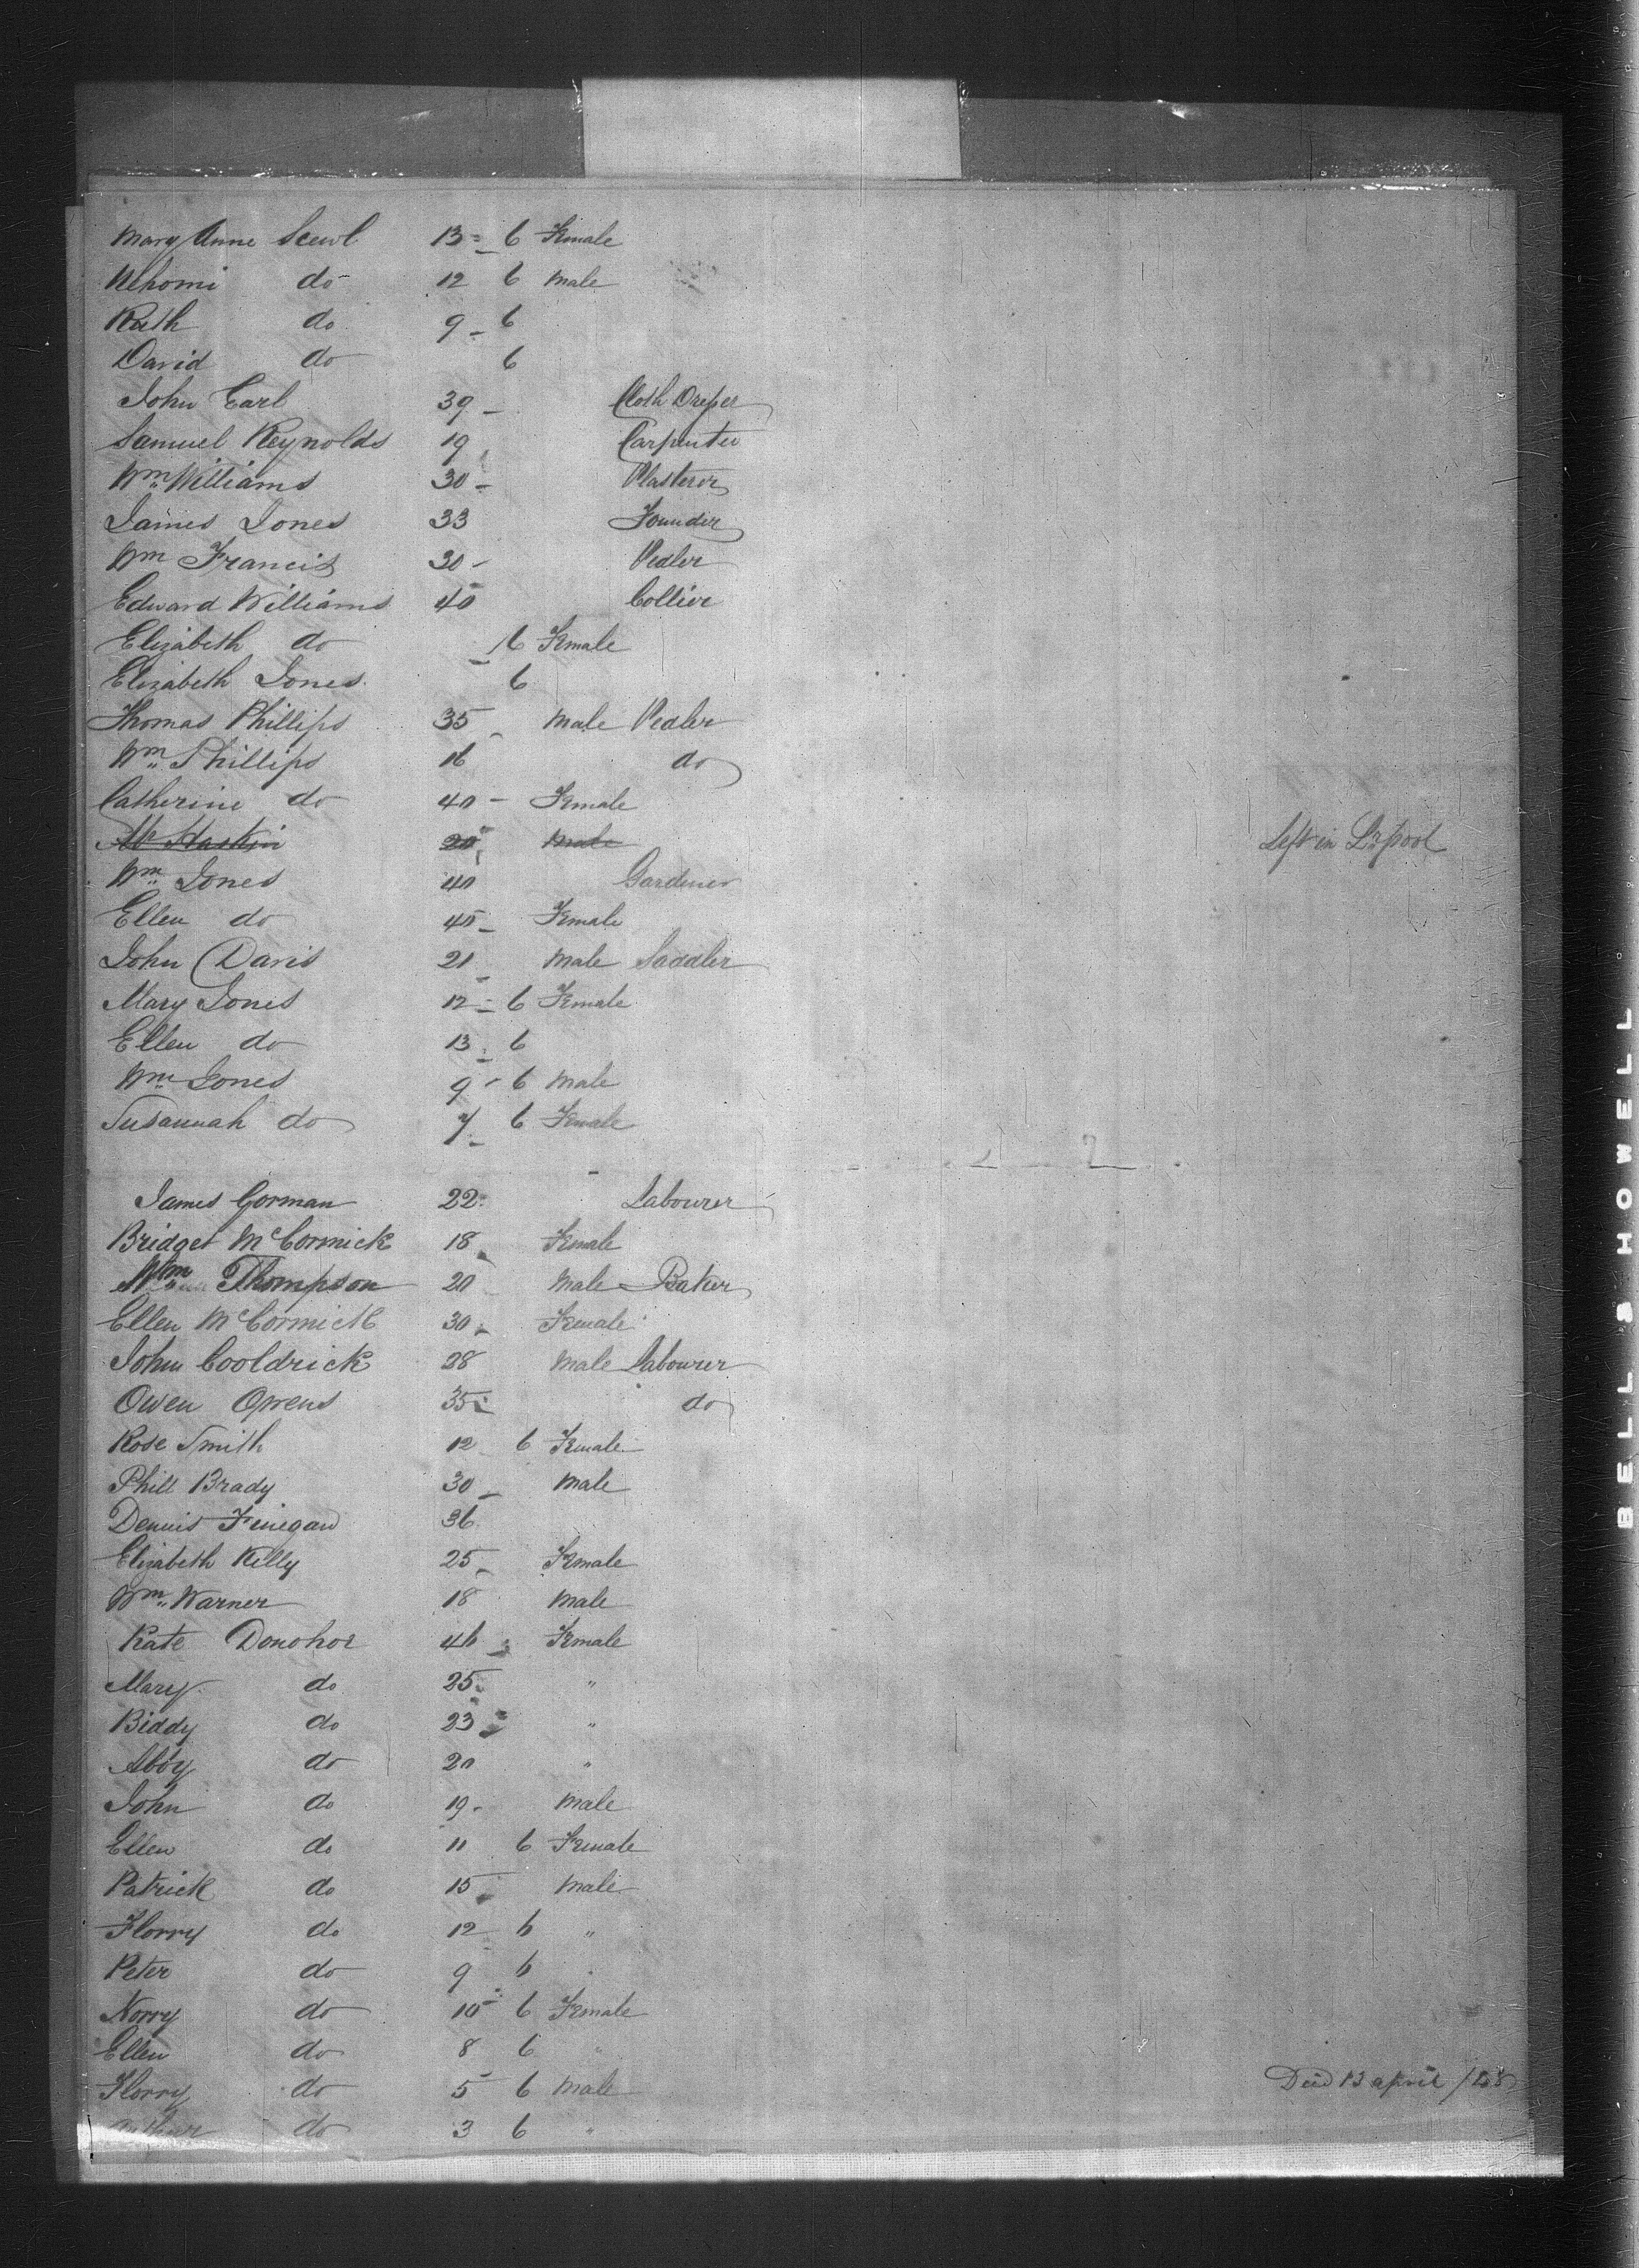 Mary Anne Scewl 13 - 6 Female
Nehomi do 12 6 male
Ruth do 9 - 6
David do 6
John Earl 39 - Cloth Dreper
Samuel Reynolds 19 Carpenter
Wm Williams 30 - Plasterer
James Jones 33 Founder
Wm Francis 30 - Pedler
Edward Williams 40 Collier
Elizabeth do 6 Female
Elizabeth Jones 6
Thomas Phillips 35 male Pedler
Wm Phillips 16 do
Catherine do 40 - Female
20 male Left in Lrpool
Wm Jones 40 Gardener
Ellen do 45 - Female
John Davis 21 male Saddler
Mary Jones 12 - 6 Female
Ellen do 13 6
Wm Jones 9 - 6 male
Susannah do 7 - 6 Female
James Gorman 22 Labourer
Bridget McCormick 18 Female
Wm Thompson 20 male Baker
Ellen McCormick 30 Female
John Cooldrick 28 male Labourer
Owen Owens 35 do
Rose Smith 12 6 Female
Phill Brady 30 - male
Dennis Finegan 36
Elizabeth Kelly 25 Female
Wm Warner 18 male
Kate Donohoe 46 Female
Mary do 25 "
Biddy do 23 "
Abby do 20 "
John do 19 - male
Ellen do 11 6 Female
Patrick do 15 male
Florry do 12 6 "
Peter do 9 6
Norry do 10 6 Female
Ellen do 8 6 "
Florry do 5 6 male Died 13 april
do 3 6 "
BELL & HOWELL